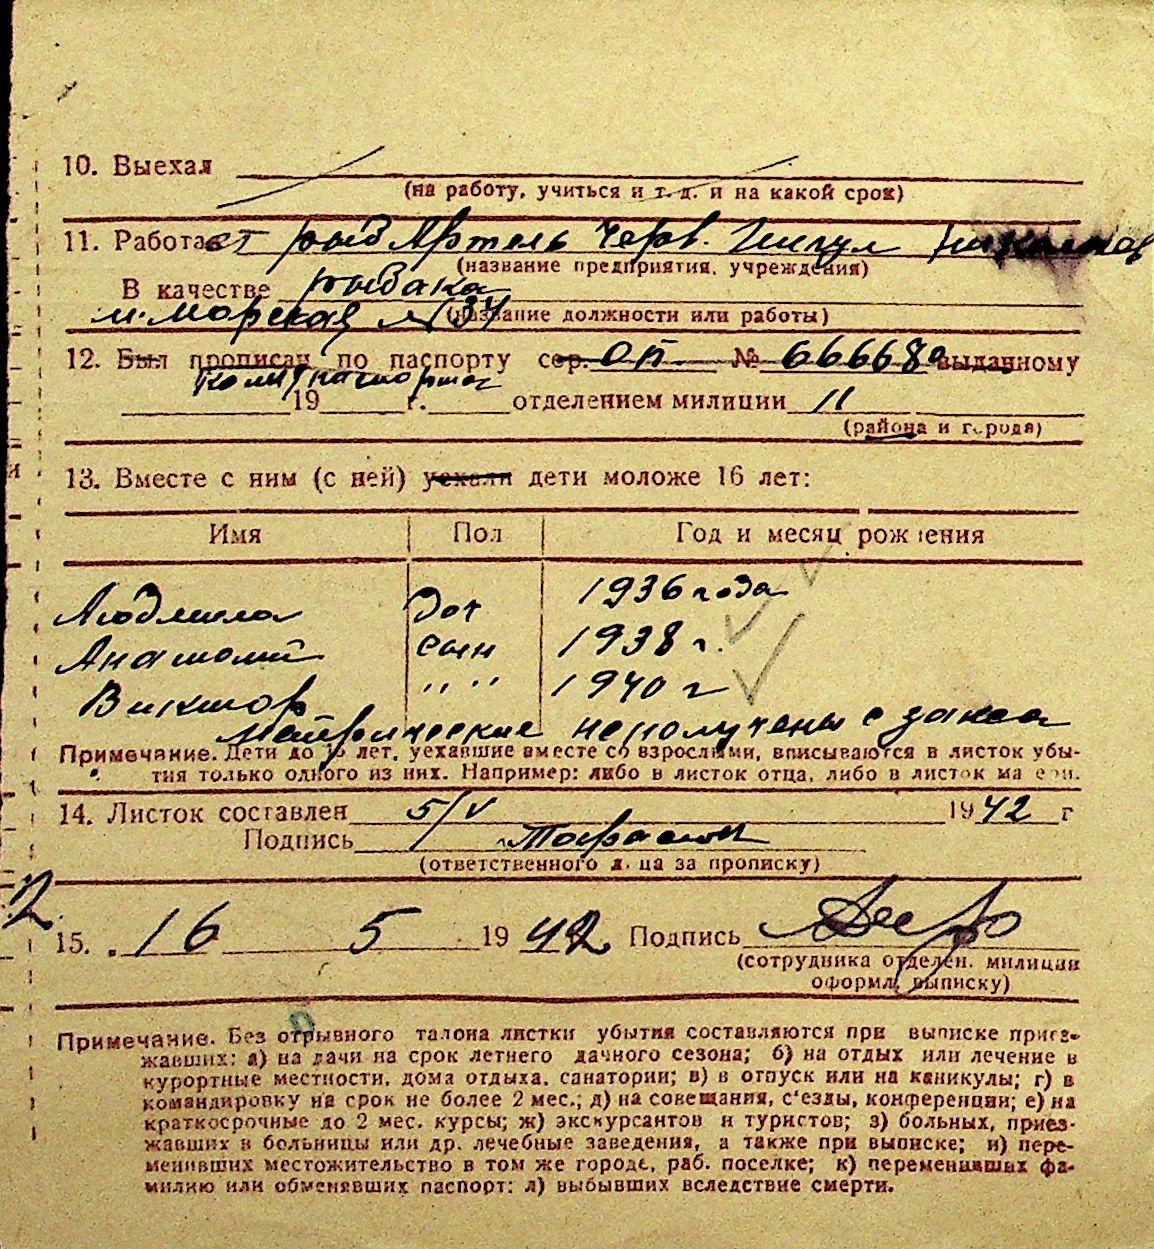 10. Выехал
(на работу, учиться и т. д. и на какой срок)
11. Работает рыбАртель Черв. Ингул
(название предприятия, учреждения)
В качестве рыбака
м. Морская № 37
(название должности или работы)
12. Был прописан по паспорту сер. ОП № 666680 выданному
паспорта
19 г. отделением милиции 11
(района и города)
13. Вместе с ним (с ней) уехали дети моложе 16 лет:
Имя Пол Год и месяц рождения
Людмила доч 1936 года
Анатолий сын 1938 г.
Виктор " " 1940 г
Метрические не получены с загса
Примечание. Дети до 16 лет, уехавшие вместе со взрослыми, вписываются в листок убы-
тия только одного из них. Например: либо в листок отца, либо в листок матери.
14. Листок составлен 5/V 1942 г
Подпись
(ответственного лица за прописку)
2
15. 16 5 1942 Подпись
(сотрудника отделен. милиции
оформл. выписку)
Примечание. Без отрывного талона листки убытия составляются при выписке приез-
жавших: а) на дачи на срок летнего дачного сезона; б) на отдых или лечение в
курортные местности, дома отдыха, санатории; в) в отпуск или на каникулы; г) в
командировку на срок не более 2 мес.; д) на совещания, с'езды, конференции; е) на
краткосрочные до 2 мес. курсы; ж) экскурсантов и туристов; з) больных, приез-
жавших в больницы или др. лечебные заведения, а также при выписке; и) пере-
менивших местожительство в том же городе, раб. поселке; к) переменивших фа-
милию или обменявших паспорт: л) выбывших вследствие смерти.